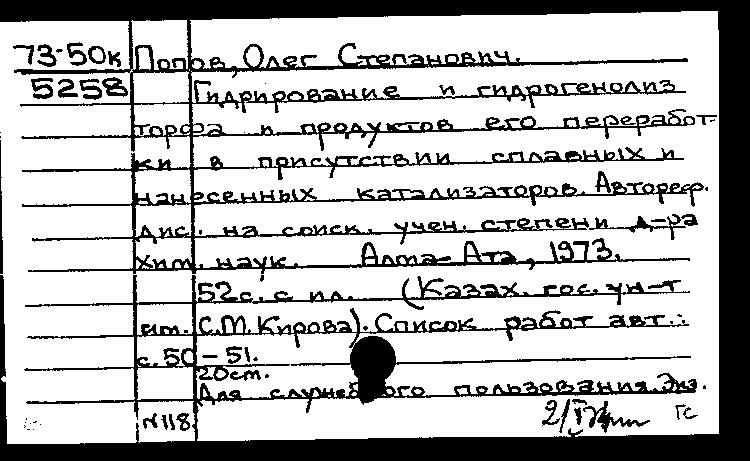 73-50к Попов, Олег Степанович.
5258 Гидрирование и гидрогенолиз
торфа и продуктов его переработ-
ки в присутствии сплавных и
нанесенных катализаторов. Автореф.
дис. на соиск. учен. степени д-ра
хим. наук. Алма-Ата, 1973.
52с. с ил. (Казах. гос. ун-т
им. С.М. Кирова). Список работ авт.:
с. 50-51.
20см.
Для служебного пользования. Экз.
№118
ГС